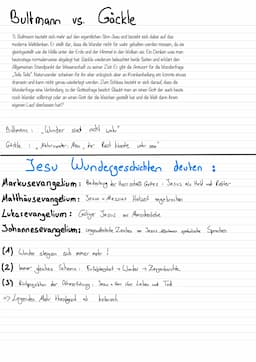 Bultmann vs. Göckle
Tc Bultmann bezieht sich auf den eigentlichen Sinn Jesu und bezieht sich dabei auf das
moderne Weltdenken. Er stellt klar, dass die Wunder nicht für wahr gehalten werden müssen, da sie
gleichgestellt wie die Hölle unter der Erde und der Himmel in den Wolken sei. Ein Denken was man
heutzutage normalerweise abgelegt hat. Göckle wiederum beleuchtet beide Seiten und erklärt den
Allgemeinen Standpunkt der Wissenschaft zu seiner Zeit. Er gibt die Antwort für die Wunderfrage
"Teils Teils". Naturwunder scheinen für ihn eher untypisch aber an Krankenheilung etc könnte etwas
dransein und kann nicht genau wiederlegt werden. Zum Schluss bezieht er sich darauf, dass die
Wunderfrage eine Verbindung zu der Gottesfrage besitzt. Glaubt man an einen Gott der auch heute
noch Wunder vollbringt oder an einen Gott der die Maschine gestellt hat und die Welt dann ihrem
eigenen Lauf überlassen hat?
Bultmann : „Wunder sind nicht wahr"
Göckle : „Naturwunder: Nein, der Rest könnte wahr sein"
Jesu Wundergeschichten deuten :
Markusevangelium: Bedeutung der Herrschaft Gottes : Jesus als Held und Retter
Matthäusevangelium: Jesus = Messias Hoheit zugesprochen
Lukasevangelium: Gütiger Jesus
Johannesevangelium: Zeichen an Jesus symbolische Sprachen
(1) Wunder steigern sich immer mehr !
(2) Immer gleiches Schema : → Wunder →
(3) Rückprojektion der Ostererfahrung : Jesus = Herr über Leben und Tod
=> Legenden Mehr als historisch